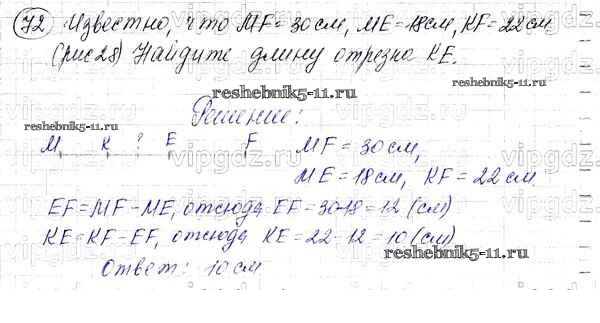 72 Известно, что MF = 30 см, ME = 18 см, KF = 22 см
(рис 28) Найдите длину отрезка KE.
reshebnik5-11.ru
reshebnik5-11.ru
Решение:
reshebnik5-11.ru
M K ? E F MF = 30 см,
ME = 18 см, KF = 22 см.
EF = MF - ME, отсюда EF = 30-18 = 12 (см)
KE = KF - EF, отсюда KE = 22 - 12 = 10 (см)
reshebnik5-11.ru
Ответ: 10 см
vipgdz.com